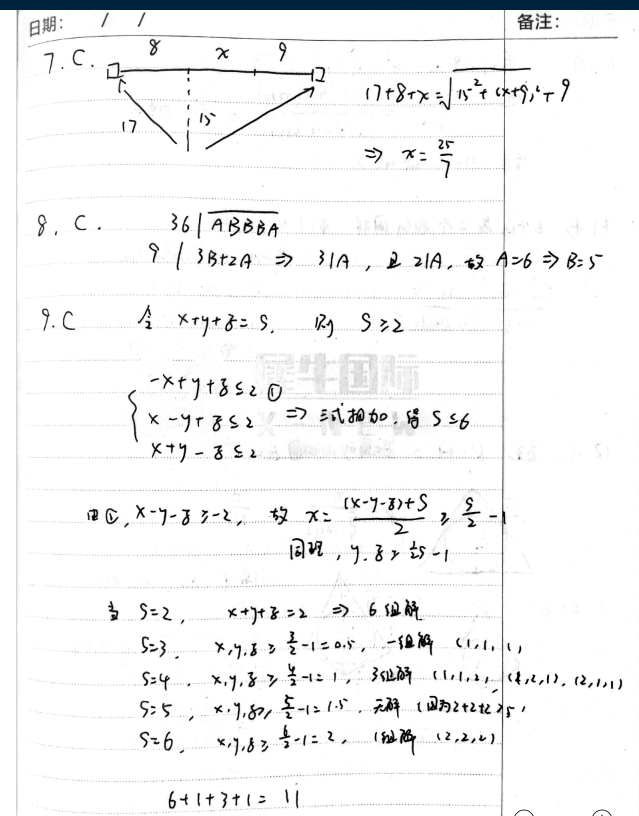 日期: / / 备注:
7. C. 8 x 9
17 15
17+8+x=√(15²+(x+9)²)+9
⇒ x=25/7
8. C. 36 | ABBBA
9 | 3B+2A ⇒ 3|A, 且 2|A, 故 A=6 ⇒ B=5
9. C 令 x+y+z=S, 则 S≥2
-x+y+z≤2 ①
x-y+z≤2 ⇒ 三式相加, 得 S≤6
x+y-z≤2
由①, x-y-z≥-2, 故 x=((x-y-z)+S)/2 ≥ S/2-1
同理, y, z ≥ ½S-1
当 S=2, x+y+z=2 ⇒ 6组解
S=3, x,y,z≥3/2-1=0.5, 一组解 (1,1,1)
S=4, x,y,z≥4/2-1=1, 3组解 (1,1,2), (1,2,1), (2,1,1)
S=5, x,y,z≥5/2-1=1.5, 无解 (因为2+2+2>5)
S=6, x,y,z≥6/2-1=2, 1组解 (2,2,2)
6+1+3+1=11